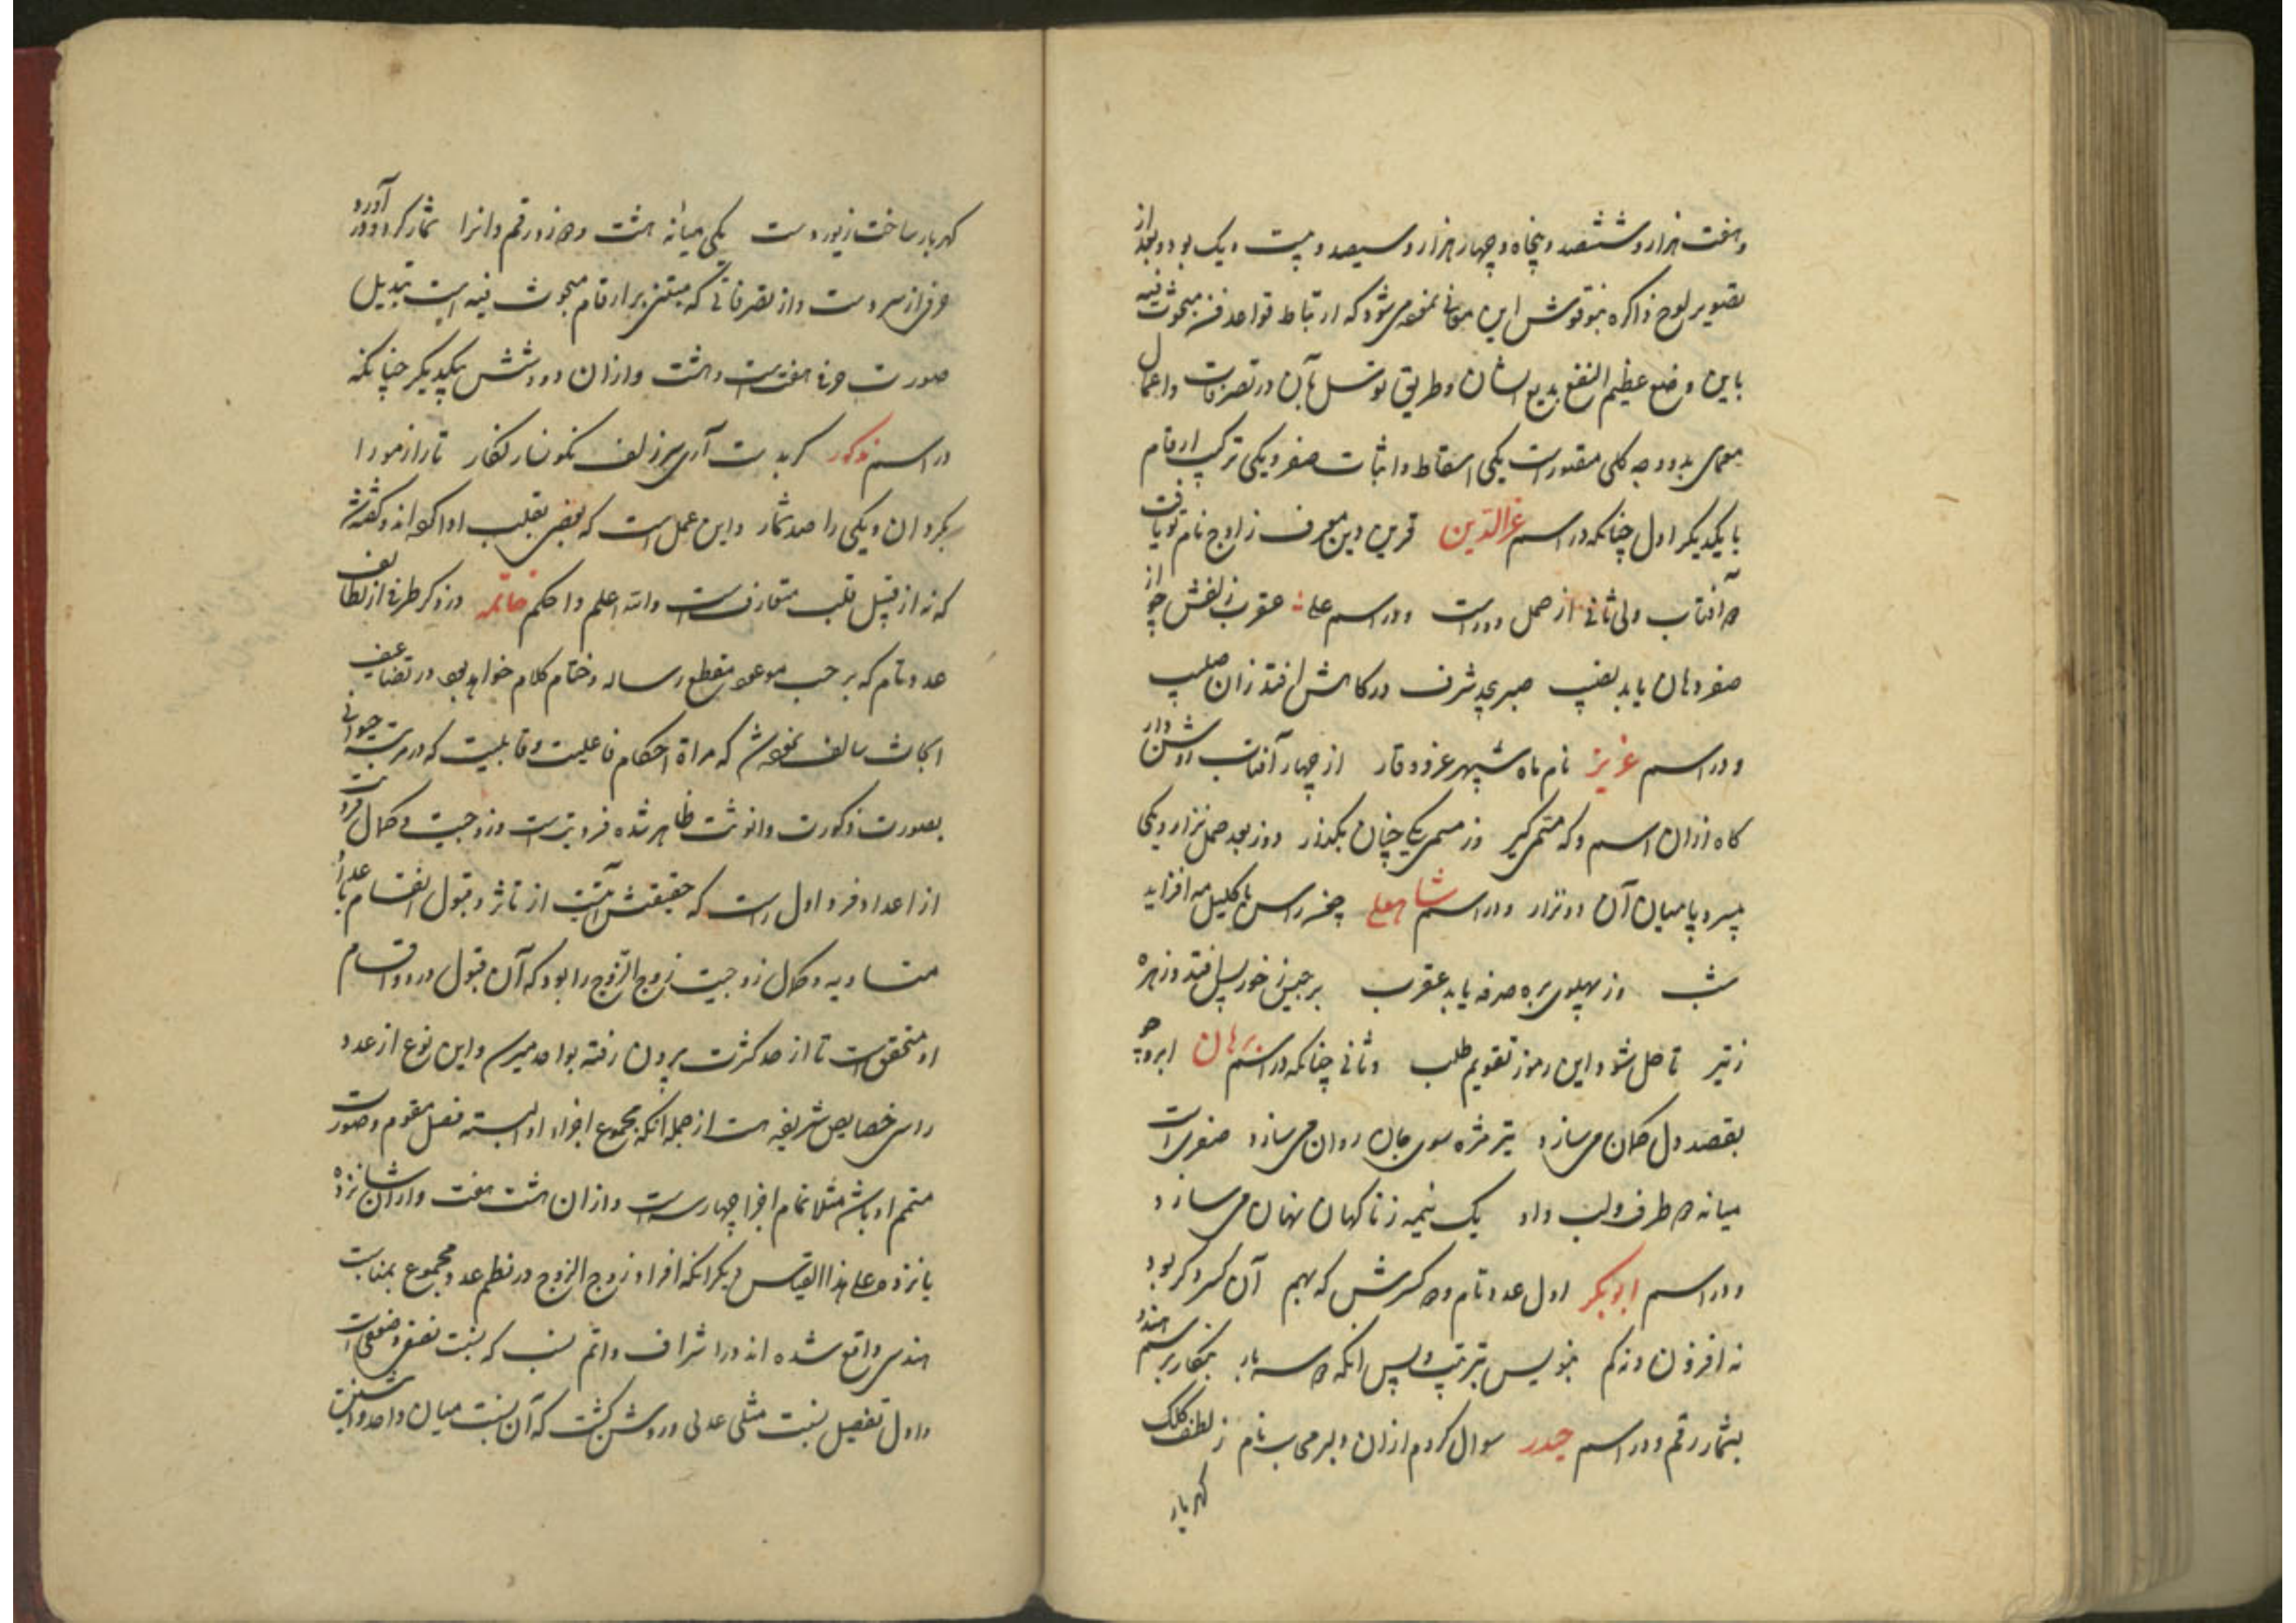 وهفت هزار و ششصد و پنجاه و چهار هزار و سیصد و بیست و یک بود و بعد از
تصویر لوح ذاکره بنقوش این معانی نموده می‌شود که ارتباط قواعد فن مبحوث فیه
باین وضع عظیم النفع بدیع الشان وطریق توسل بآن در تصرفات و اعمال
معمای بدو وجه کلی مقصورست یکی اسقاط و اثبات صفر و یکی ترکیب ارقام
با یکدیگر اول چنانکه در اسم عزالدین قرین دین معرف ز اوج نام تو یافت
آفتاب ولی ثانی از حمل دورست و در اسم علی عقرب زلفش چو از
صفر دهان یابد نصیب صبر بی شرف در کاهش افتد زان صلیب
و در اسم عزیز نام ماه سپهر عز و وقار از چهار آفتاب روشن دار
گاه ازان اسم و که مسمی گیر وز مسمی یکی چنان بگذار دوز بعد حمل نزار و یکی
بیسر و پا میان آن دو نزار و در اسم شاهعلی
شب وز پهلوی بره صرفه یابد عقرب برجیس ز خور پس افتد و زهره
ز تیر تا حل شود این رموز تقویم طلب و ثانی چنانکه در اسم برهان ابرو چو
بقصد دل کمان می سازد تیر مژه سوی جان روان می سازد صفریست
میانه دو طرف ولب داد یک نیمه ز ناگهان نهان می سازد
و در اسم ابوبکر اول عدد تام و دو کسرش که بهم آن کسر و کر بود
نه افزون و نه کم بنویس بترتیب و پس انکه سه بار بنگار برسم هند
بشمار رقم و در اسم حیدر سوال کردم ازان دلبر می نام ز لطف کلک
گهربار
گهربار ساخت زیور دست یکی میانه هشت و دو زد رقم و انرا شمار کرد و در آورد
حرفی از سر دست و از تصرفاتی که مبتنی بر ارقام مبحوث فیه است تبدیل
صورت حرفی هفت است و هشت و ازان دو و شش بیکدیگر چنانکه
در اسم مذکور گر بدست آری سر زلف نگونسار نگار تار از مو را
بگردان و یکی را صد شمار و این عمل است که بعضی بقلب ادا کرده‌اند و گفته شد
که نه از قبیل قلب متعارفست والله اعلم و احکم خاتمه در ذکر طرفی از لطایف
عدد تام که بر حسب موعود مقطع رساله و ختام کلام خواهد بود در تضاعیف
ابحاث سالف نموده شد که مرآة احکام فاعلیت و قابلیت که در مرتبه حیوانی
بصورت ذکورت و انوثت ظاهر شده فردیتست و زوجیت و کمال فردیت
از اعداد فرد اول راست که حقیقتش آبیست از تاثر و قبول انقسام باعداد
متساویه و کمال زوجیت زوج الزوج را بود که آن قبول در دو اقسام
او متحقق است تا از حد کثرت بیرون رفته بواحد میرسد و این نوع از عدد
راسی خصایص شریفه است از جمله آنکه مجموع اجزاء او البته فصل مقوم و صورت
متمم او باشد مثلا تمام اجزا چهار سه است و ازان هشت هفت و ازان شانزده
پانزده و علی هذا القیاس دیگر آنکه افراد زوج الزوج در نظم عدد مجموع بمناسبت
هندسی واقع شده‌اند در اشراف و اتم نسب که نسبت نصفی و ضعفی است
و اول تفصیل نسبت مثلی عدلی و روشن گشت که آن نسبت میان واحد و اثنین